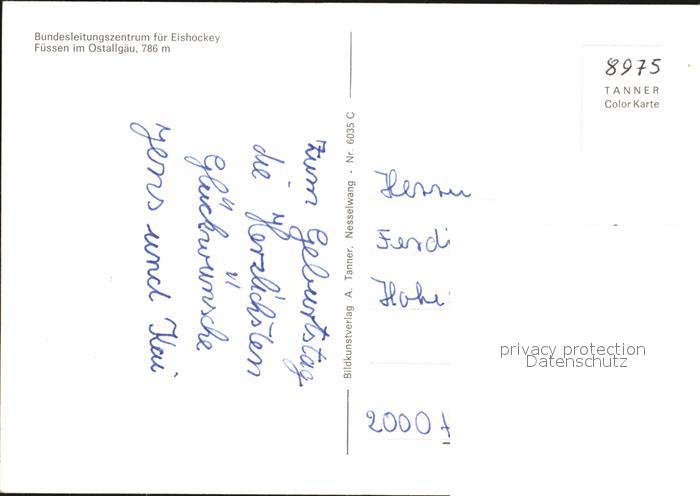 Bundesleitungszentrum für Eishockey
Füssen im Ostallgäu, 786 m
Zum Geburtstag
die Herzlichsten
Glückwünsche
Jens und Kai
Bildkunstverlag A. Tanner, Nesselwang · Nr. 6035 C
8975
TANNER
Color Karte
Herrn
Ferdi
Hohe
privacy protection
Datenschutz
2000